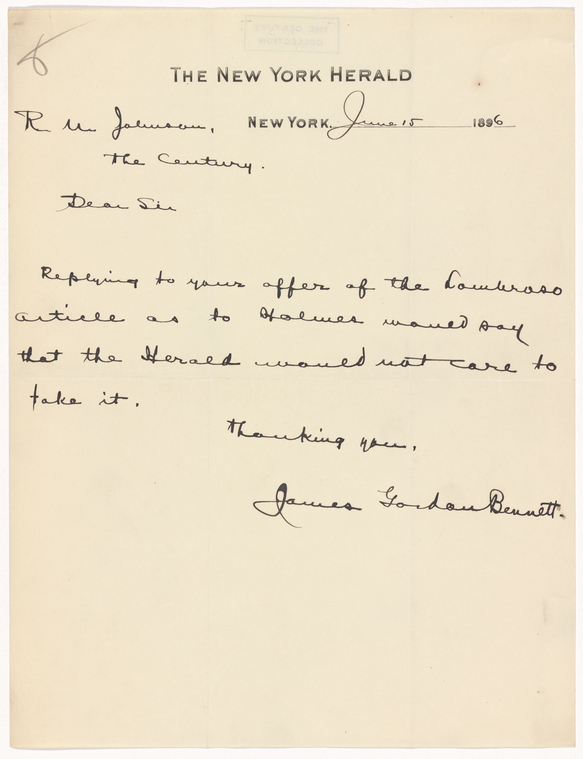 THE NEW YORK HERALD
R. U. Johnson, NEW YORK, June 15 1896
The Century.
Dear Sir
Replying to your offer of the Lombroso
article as to Holmes would say
that the Herald would not care to
take it.
Thanking you,
James Gordon Bennett.